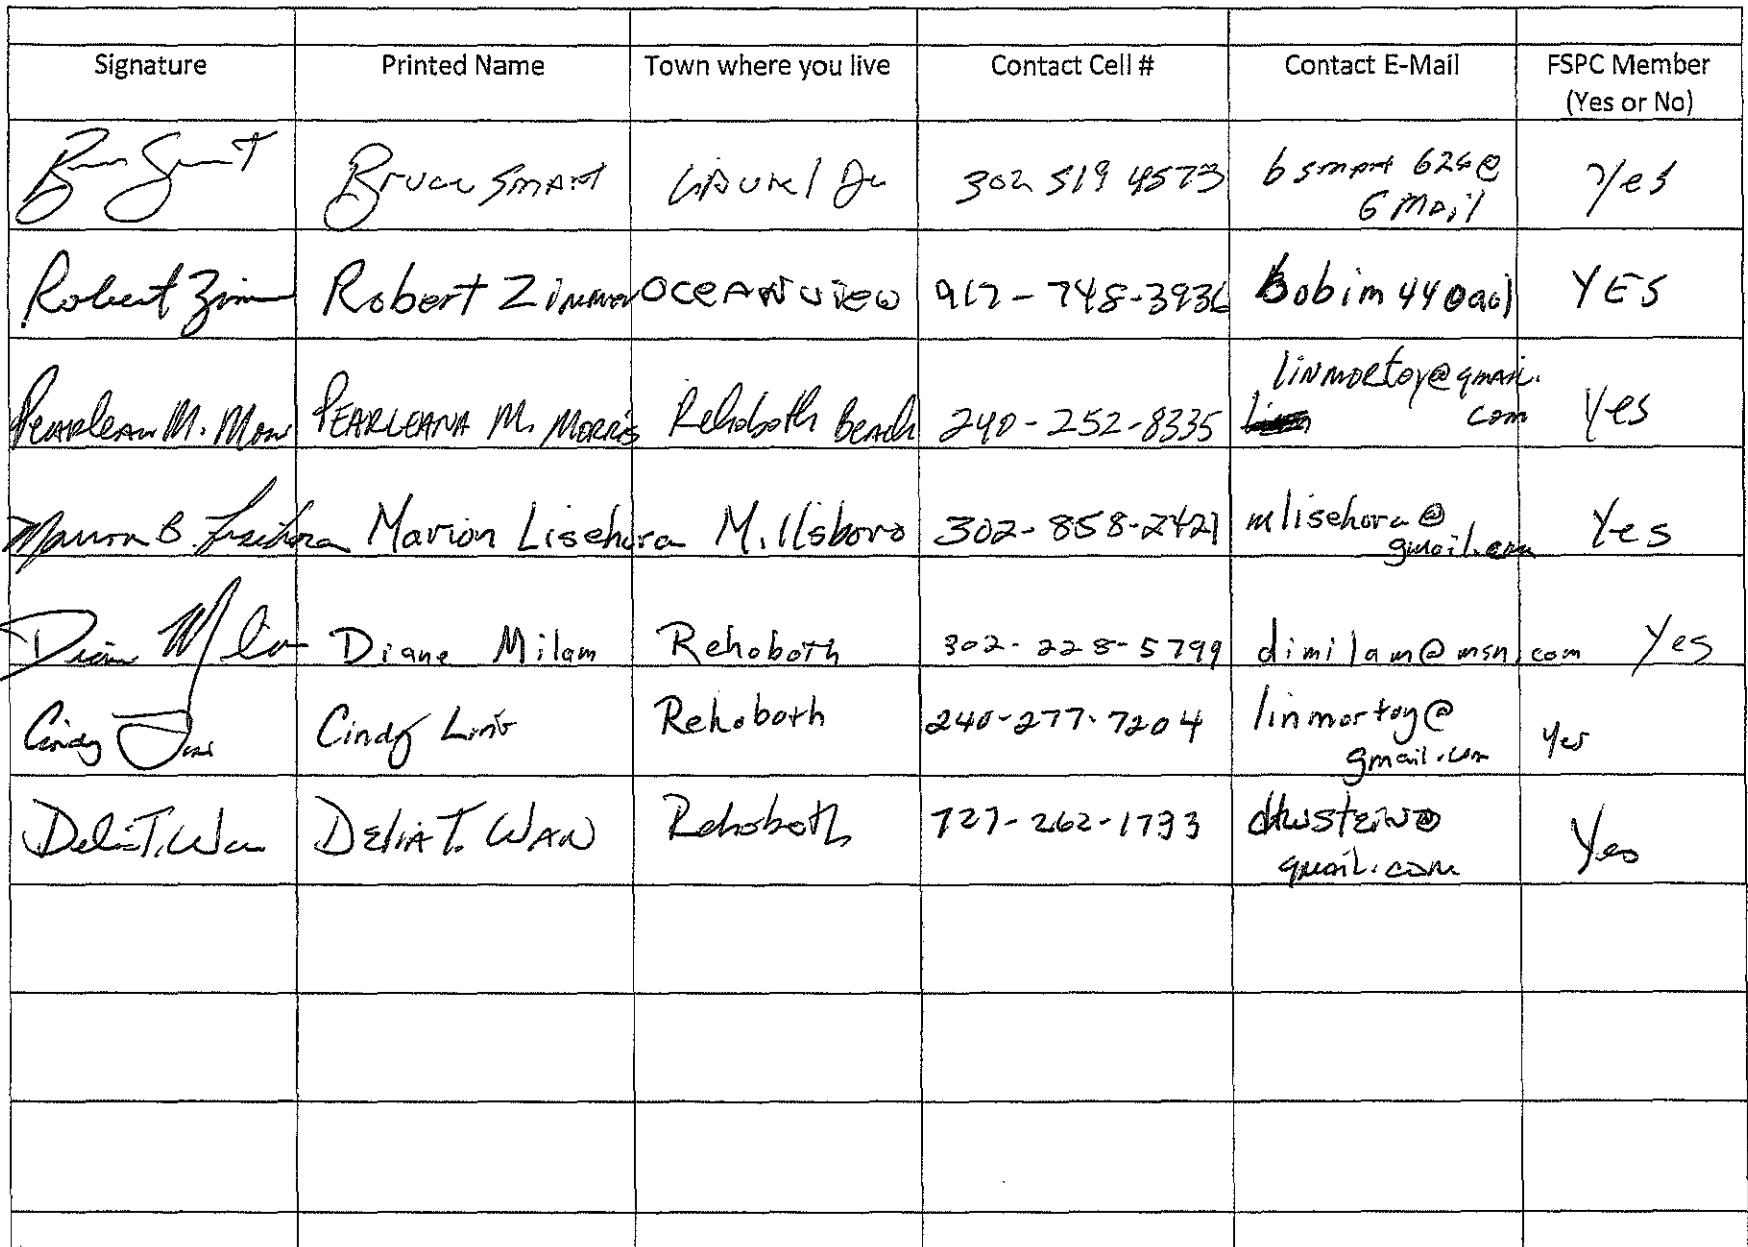 Signature Printed Name Town where you live Contact Cell # Contact E-Mail FSPC Member
(Yes or No)
Bruce Smart Laurel De 302 519 4573 bsmart 624@ Yes
GMail
Robert Zimm Robert Zimmer OCEANVIEW 917-748-3936 Bobim44@aol YES
linmortoy@gmail.
Pearleana M. Morris PEARLEANA M. MORRIS Rehoboth Beach 240-252-8335 com Yes
Marion B. Lisehora Marion Lisehora Millsboro 302-858-2421 mlisehora@ Yes
gmail.com
Diane Milam Diane Milam Rehoboth 302-228-5799 dimilam@msn.com Yes
Cindy Cindy Lins Rehoboth 240-277-7204 linmortoy@ yes
gmail.com
Delia T. Wan DELIA T. WAN Rehoboth 727-262-1733 dtwstein@ Yes
gmail.com